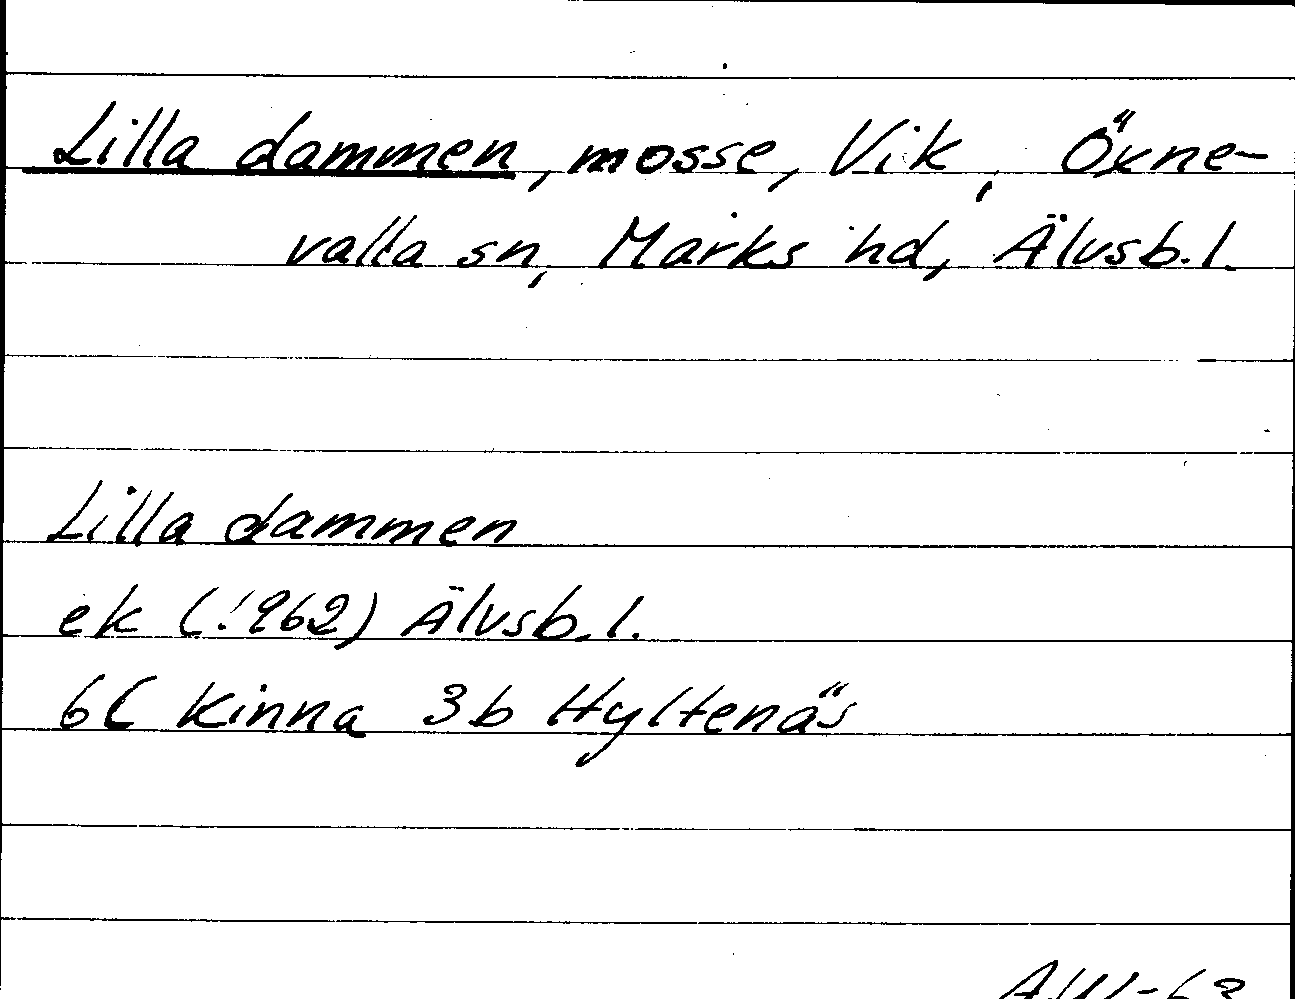 Lilla dammen, mosse, Vik, Öxne-
valla sn, Marks hd, Älvsb. l.
Lilla dammen
ek (1962) Älvsb. l.
6C Kinna 3b Hyltenäs